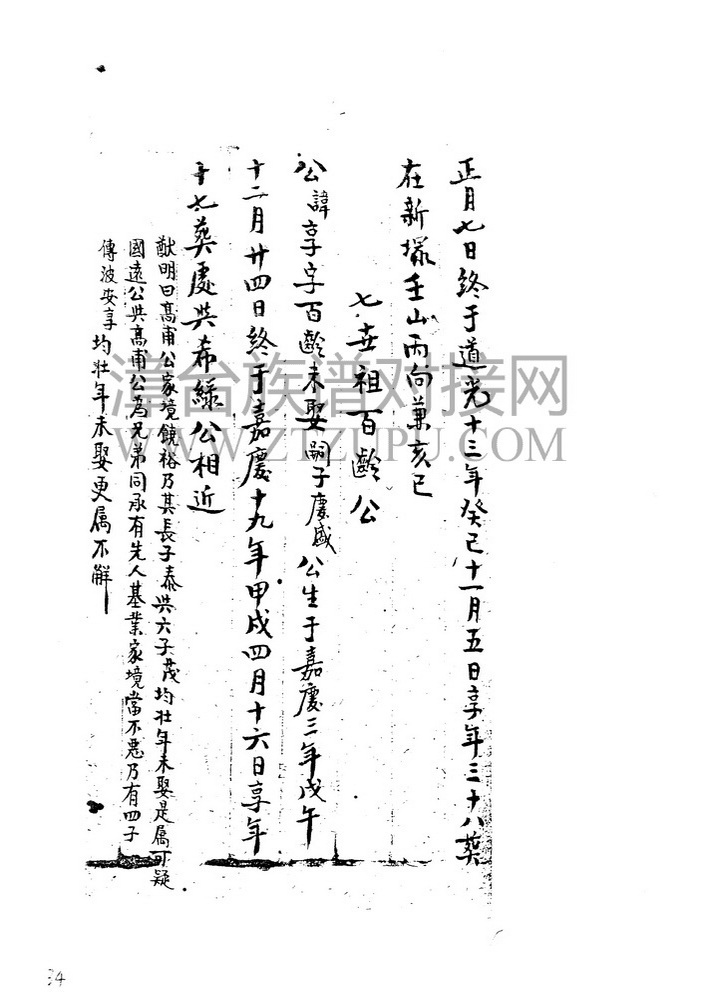 正月七日終于道光十三年癸巳十一月五日享年三十八葬
在新塚壬山丙向兼亥巳
七世祖百齡公
公諱享字百齡未娶嗣子慶盛公生于嘉慶三年戊午
十二月廿四日終于嘉慶十九年甲戌四月十六日享年
十七葬處共希綠公相近
猷明曰高甫公家境饒裕乃其長子泰共六子茂均壯年未娶是属可疑
國遠公共高甫公為兄弟同承有先人基業家境當不惡乃有四子
傳波安享均壯年未娶更属不解
清台族谱对接网
WWW.ZTZUPU.COM
34